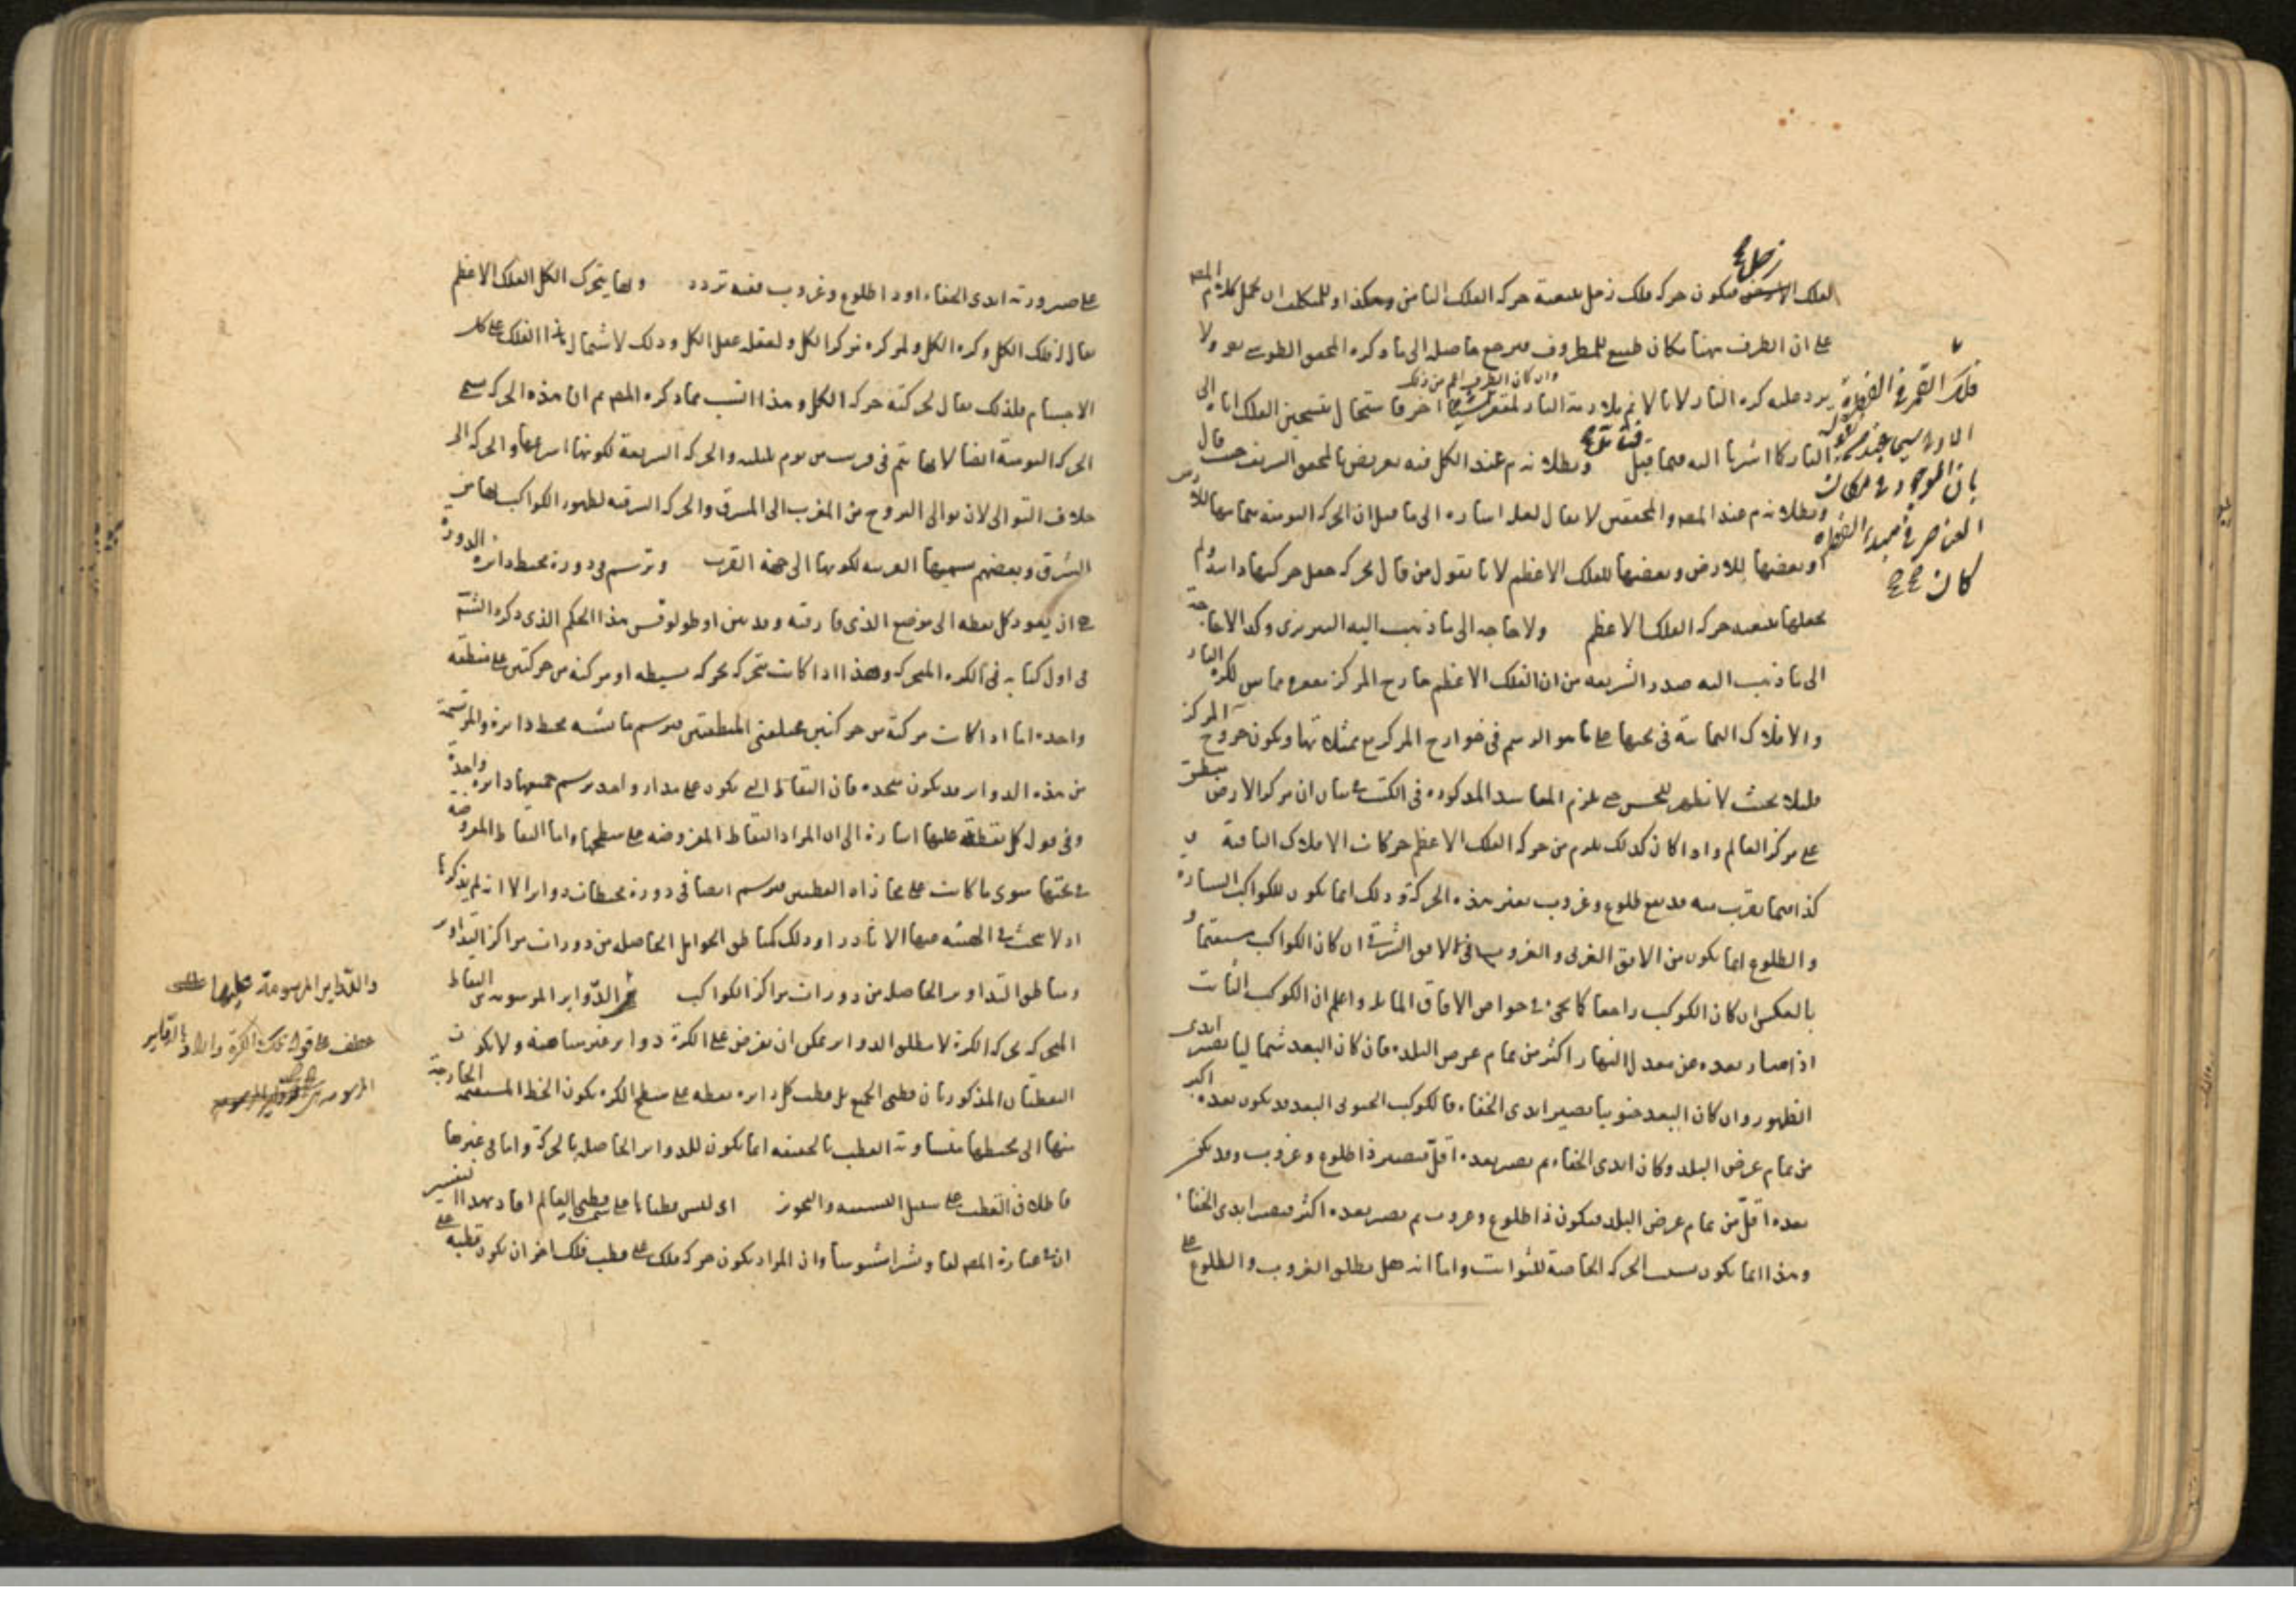 زحل صح
الفلك فيكون حركة فلك زحل بتبعية حركة الفلك الثامن وهكذا او للتكلف ان يحمل كلام المصه
على ان الظرف ههنا مكان طبيعي للمظروف فيرجع حاصله الى ما ذكره المحقق الطوسي هو ولا
وان كان الظرف اعم من ذلك
يرد عليه كرة النار لانا لا نم ملازمة النار لمقعر اخر فاستحال بتسخين الفلك اياه الى
النار كما اشرنا اليه فيما قيل وبطلانه م عند الكل فيه تعريض بالمحقق الشريف حيث قال
وبطلانه م عند المصه والمحققين لا يقال لعله اشارة الى ما قيل ان الحركة اليومية بتمامها للارض
او بعضها للارض وبعضها للفلك الاعظم لانا نقول من قال بحركة جعل حركتها ولم
يجعلها بتبعية حركة الفلك الاعظم ولا حاجة الى ما ذهب اليه التبريزي وكذا لا حاجة
الى ما ذهب اليه صدر الشريعة من ان الفلك الاعظم خارج المركز مقعره مماس لكرة النار
والافلاك الثمانية في ثخنها على ما هو الرسم في خوارج المركز مع ممثلاتها ويكون خروج المركز
قليلا بحيث لا يظهر للحس حتى يلزم المفاسد المذكورة في الكتب في بيان ان مركز الارض منطبق
على مركز العالم واذا كان كذلك يلزم من حركة الفلك الاعظم حركات الافلاك الباقية
كذا فيما يقرب منه قد يقع طلوع وغروب بغير هذه الحركة وذلك انما يكون للكواكب السيارة
والطلوع انما يكون من الافق الغربي والغروب في الافق الشرقي ان كان الكواكب مستقيما و
بالعكس ان كان الكوكب راجعا كما يجيء في خواص الافاق المائلة واعلم ان الكوكب الثابت
اذا صار بعده عن معدل النهار اكثر من تمام عرض البلد فان كان البعد شماليا يصير ابدي
الظهور وان كان البعد جنوبيا يصير ابدي الخفاء فالكوكب الجنوبي البعد قد يكون بعده اكثر
من تمام عرض البلد وكان ابدي الخفاء ثم يصير بعده اقل فيصير ذا طلوع وغروب وقد يكون
بعده اقل من تمام عرض البلد فيكون ذا طلوع وغروب ثم يصير بعده اكثر فيصير ابدي الخفاء
وهذا انما يكون بسبب الحركة الخاصة للثوابت واما انه هل يطلق الغروب والطلوع على
فلك القمر في
بان الموجود في مكان
العناصر في مبدء الفطرة
كان صح صح
على صيرورته ابدي الخفاء او ذا طلوع وغروب ففيه تردد وبها يتحرك الكل الفلك الاعظم
يقال له فلك الكل وكرة الكل ولمركزه مركز الكل ولعقله عقل الكل وذلك لاشتمال هذا الفلك على كل
الاجسام فلذلك يقال لحركته حركة الكل وهذا انسب مما ذكره المصه ثم ان هذه الحركة تسمى
الحركة اليومية ايضا لانها تتم في قريب من يوم بليلته والحركة السريعة لكونها اسرعها والحركة الى
خلاف التوالي لان توالي البروج من المغرب الى المشرق والحركة الشرقية لظهور الكواكب بها من
الشرق وبعضهم سميها الغربية لكونها الى جهة الغرب وترتسم في دورة محيط دائرة الدورة
هي ان يعود كل نقطة الى موضع الذي فارقته وقد بين اوطولوقس هذا الحكم الذي ذكره الشم
في اول كتابه في الكرة المتحركة وهذا اذا كانت تتحرك بحركة بسيطة او مركبة من حركتين على منطقة
واحدة اما اذا كانت مركبة من حركتين مختلفتي المنطقتين فيرتسم ما يشبه محيط دائرة والمرتسمة
من هذه الدوائر قد يكون متحدة فان النقاط التي تكون على مدار واحد يرتسم جميعها دائرة واحدة
وفي قوله كل نقطة عليها اشارة الى ان المراد النقاط المفروضة على سطحها واما النقاط المفروضة
في ثخنها سوى ما كانت على محاذاة القطبين فيرتسم ايضا في دورة محيطات دوائر الا انه لم يذكرها
اذ لا يبحث في الهيئة عنها الا نادرا وذلك كمناطق الحوامل الحاصلة من دورات مراكز التداوير
ومناطق التداوير الحاصلة من دورات مراكز الكواكب ثم الدوائر المرسومة من النقاط
المتحركة بحركة الكرة لا مطلق الدوائر يمكن ان يفرض على الكرة دوائر غير متناهية ولا يكون
النقطتان المذكورتان قطبي الجميع بل قطب كل دائرة نقطة على سطح الكرة يكون الخط المستقيم الخارجة
منها الى محيطها متساوية القطب بالحقيقة انما يكون للدوائر الحاصلة بالحركة واما في غيرها
فاطلاق القطب على سبيل التشبيه والتجوز اي ليس قطباها على سمت قطبي العالم افاد بهذا التفسير
ان في عبارة المصه لفا ونشرا مشوشا وان المراد بكون حركة فلك على قطب فلك اخر ان يكون قطبه على
والدوائر المرسومة عليها
عطف على قوله تلك الكرة والمراد بالدوائر
المرسومة من